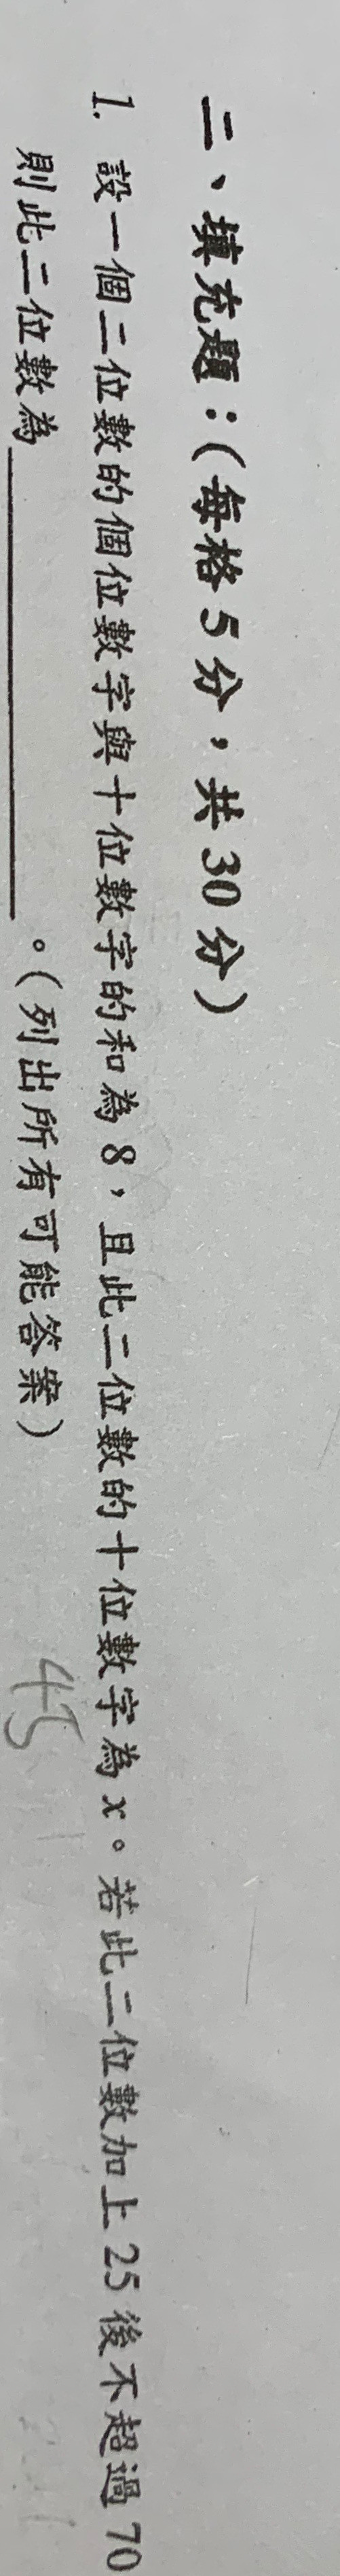 二、填充題：(每格 5 分，共 30 分)
1. 設一個二位數的個位數字與十位數字的和為 8，且此二位數的十位數字為 x。若此二位數加上 25 後不超過 70
則此二位數為＿＿＿＿＿＿。(列出所有可能答案)
45